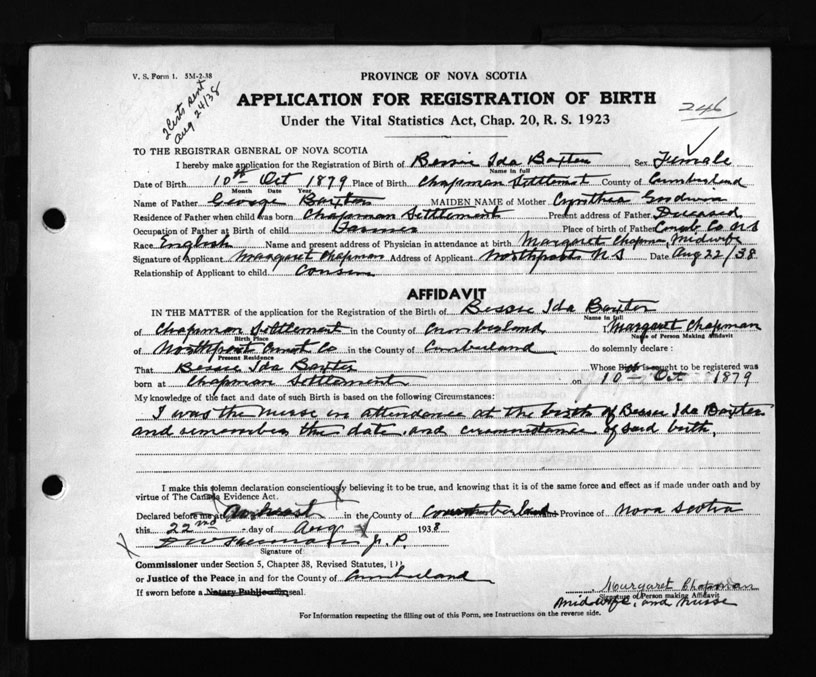 V. S. Form 1. 5M-2-38
PROVINCE OF NOVA SCOTIA
2 Certs sent
Aug 24/38
APPLICATION FOR REGISTRATION OF BIRTH
246
Under the Vital Statistics Act, Chap. 20, R. S. 1923
TO THE REGISTRAR GENERAL OF NOVA SCOTIA
I hereby make application for the Registration of Birth of Bessie Ida Baxter Sex Female
Name in full
Date of Birth 10th Oct 1879 Place of Birth Chapman Settlement County of Cumberland
Month Date Year
Name of Father George Baxter MAIDEN NAME of Mother Cynthia Goodwin
Residence of Father when child was born Chapman Settlement Present address of Father Deceased
Occupation of Father at Birth of child Farmer Place of birth of Father Cumb. Co NS
Race English Name and present address of Physician in attendance at birth Margaret Chapman, Midwife
Signature of Applicant Margaret Chapman Address of Applicant Northport NS Date Aug 22/38
Relationship of Applicant to child Cousin
AFFIDAVIT
IN THE MATTER of the application for the Registration of the Birth of Bessie Ida Baxter
Name in full
of Chapman Settlement in the County of Cumberland, I Margaret Chapman
Birth Place Name of Person Making Affidavit
of Northport Co in the County of Cumberland do solemnly declare:
Present Residence
That Bessie Ida Baxter Whose Birth is sought to be registered was
born at Chapman Settlement on 10th Oct 1879
My knowledge of the fact and date of such Birth is based on the following Circumstances:
I was the nurse in attendance at the birth of Bessie Ida Baxter
and remember the date and circumstance of said birth.
I make this solemn declaration conscientiously believing it to be true, and knowing that it is of the same force and effect as if made under oath and by
virtue of The Canada Evidence Act.
Declared before me at Amherst in the County of Cumberland Province of Nova Scotia
this 22nd day of Aug 1938
J. P.
Signature of
Commissioner under Section 5, Chapter 38, Revised Statutes,
or Justice of the Peace in and for the County of Cumberland
If sworn before a Notary Public seal.
Margaret Chapman
Signature of Person making Affidavit
Midwife, and Nurse
For Information respecting the filling out of this Form, see Instructions on the reverse side.